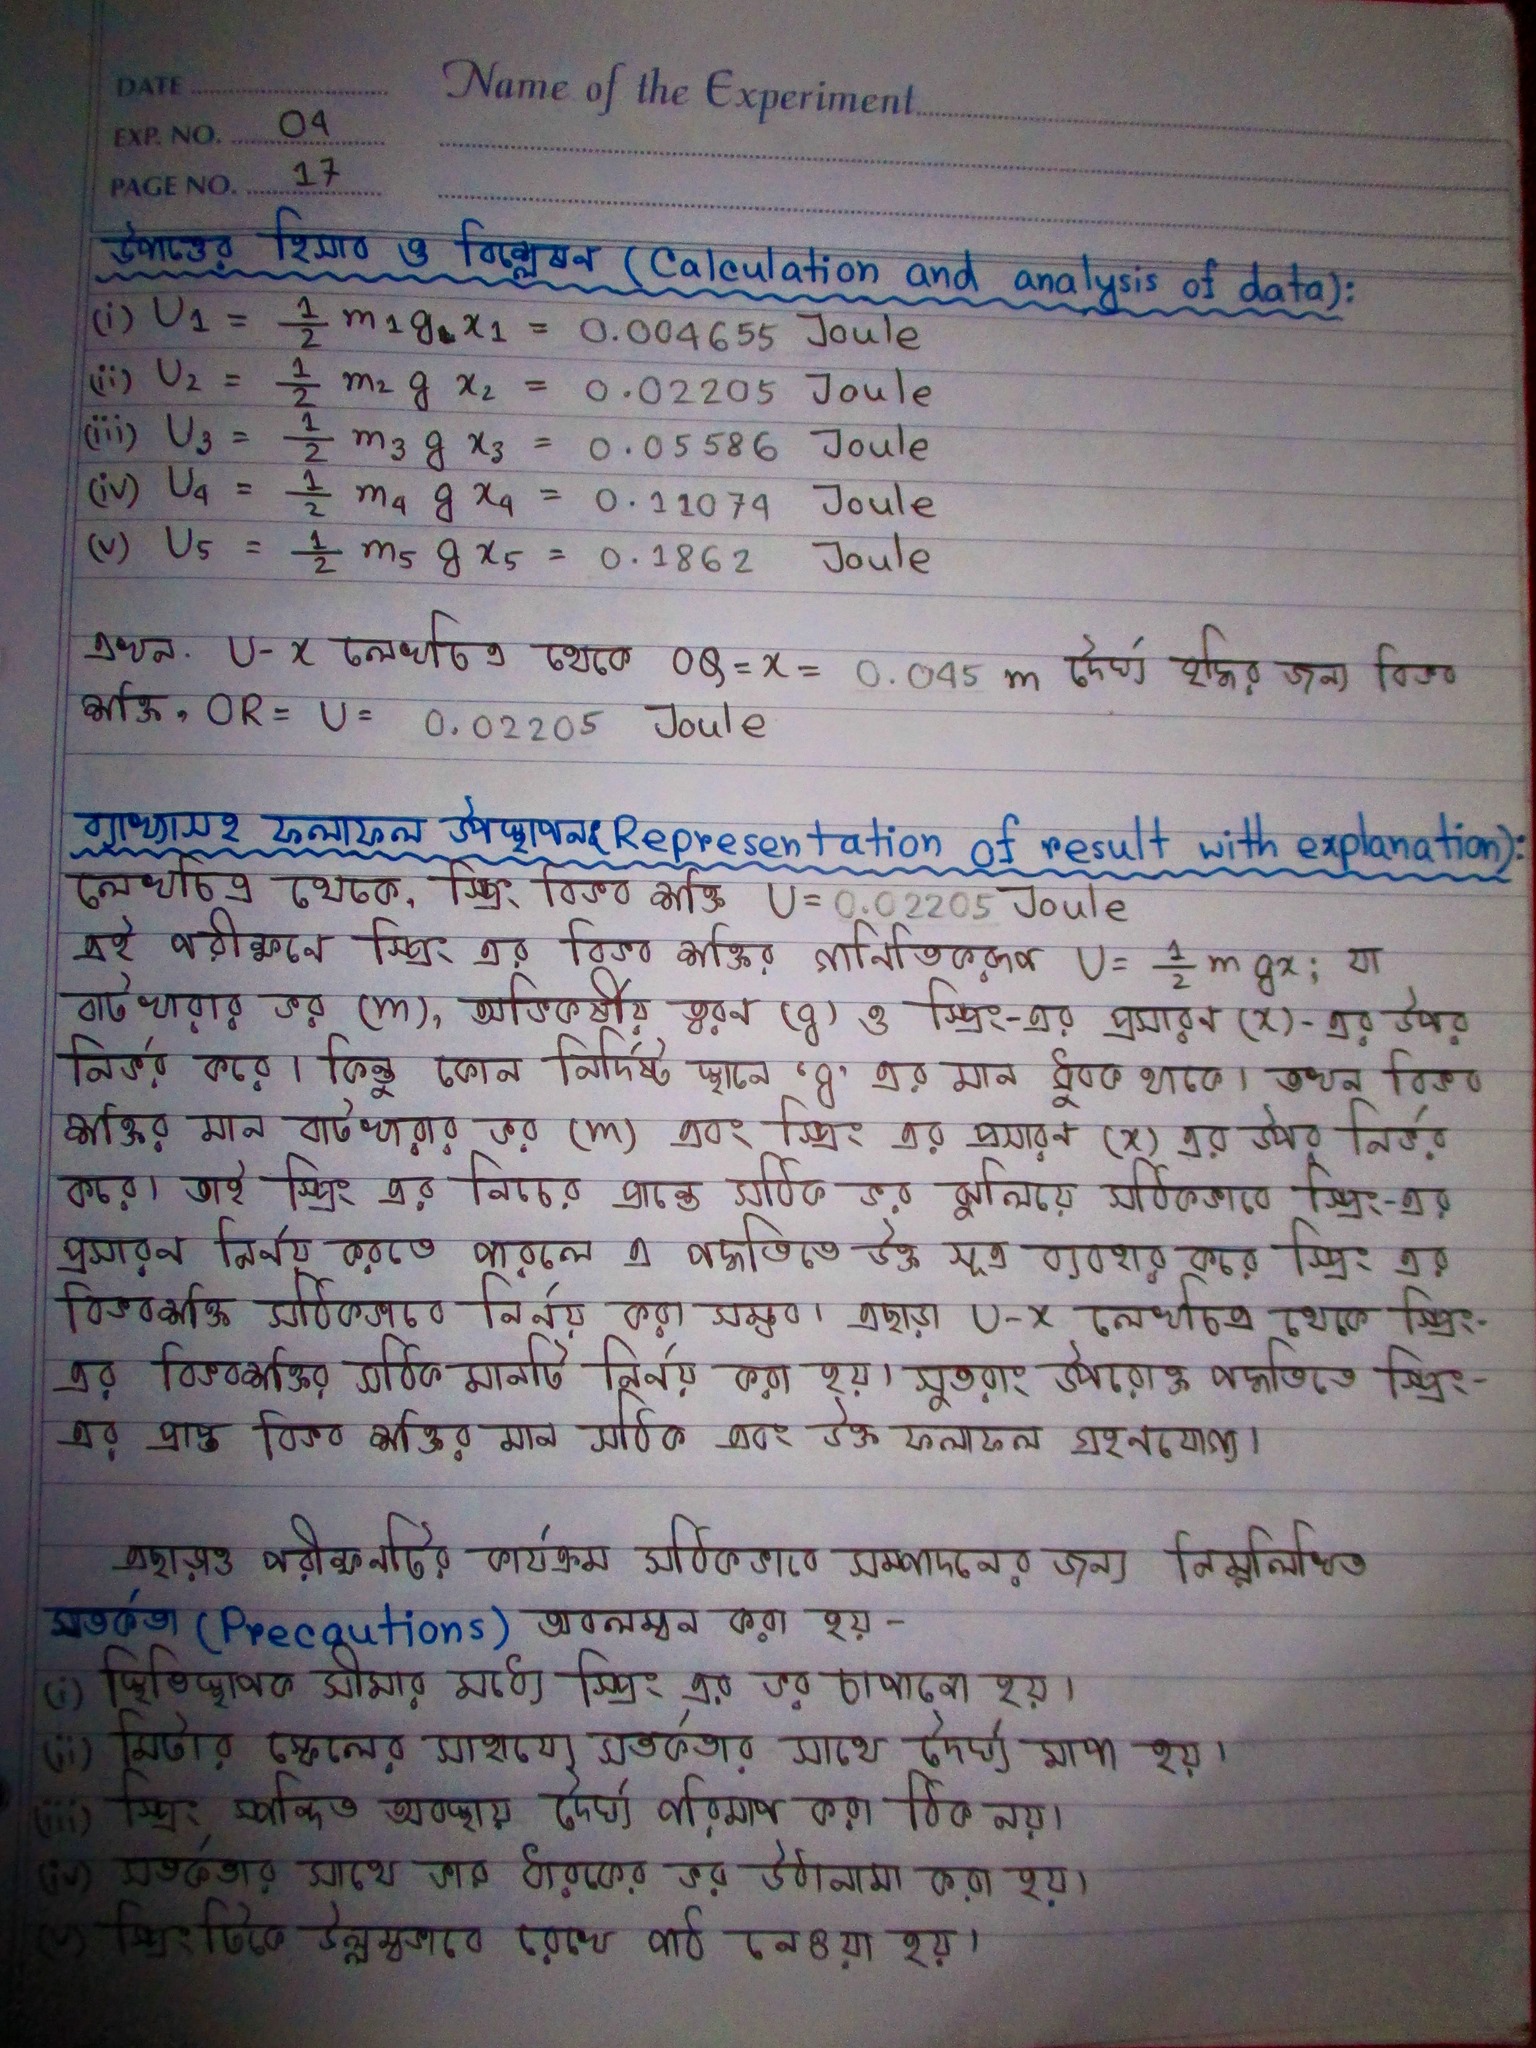 DATE
Name of the Experiment
EXP. NO. 04
PAGE NO. 17
উপাত্তের হিসাব ও বিশ্লেষন (Calculation and analysis of data):
(i) U1 = 1/2 m1 g x1 = 0.004655 Joule
(ii) U2 = 1/2 m2 g x2 = 0.02205 Joule
(iii) U3 = 1/2 m3 g x3 = 0.05586 Joule
(iv) U4 = 1/2 m4 g x4 = 0.11074 Joule
(v) U5 = 1/2 m5 g x5 = 0.1862 Joule
এখন. U-x লেখচিত্র থেকে OQ = x = 0.045 m দৈর্ঘ্য বৃদ্ধির জন্য বিভব
শক্তি, OR = U = 0.02205 Joule
ব্যাখ্যাসহ ফলাফল উপস্থাপন (Representation of result with explanation):
লেখচিত্র থেকে, স্প্রিং বিভব শক্তি U = 0.02205 Joule
এই পরীক্ষনে স্প্রিং এর বিভব শক্তির গানিতিকরূপ U = 1/2 m gx; যা
বাটখারার ভর (m), অভিকর্ষীয় ত্বরন (g) ও স্প্রিং-এর প্রসারন (x)-এর উপর
নির্ভর করে। কিন্তু কোন নির্দিষ্ট স্থানে 'g' এর মান ধ্রুবক থাকে। তখন বিভব
শক্তির মান বাটখারার ভর (m) এবং স্প্রিং এর প্রসারন (x) এর উপর নির্ভর
করে। তাই স্প্রিং এর নিচের প্রান্তে সঠিক ভর ঝুলিয়ে সঠিকভাবে স্প্রিং-এর
প্রসারন নির্নয় করতে পারলে এ পদ্ধতিতে উক্ত সূত্র ব্যবহার করে স্প্রিং এর
বিভবশক্তি সঠিকভাবে নির্নয় করা সম্ভব। এছাড়া U-x লেখচিত্র থেকে স্প্রিং-
এর বিভবশক্তির সঠিক মানটি নির্নয় করা হয়। সুতরাং উপরোক্ত পদ্ধতিতে স্প্রিং-
এর প্রাপ্ত বিভব শক্তির মান সঠিক এবং উক্ত ফলাফল গ্রহনযোগ্য।
এছাড়াও পরীক্ষনটির কার্যক্রম সঠিকভাবে সম্পাদনের জন্য নিম্নলিখিত
সতর্কতা (Precautions) অবলম্বন করা হয় -
(i) স্থিতিস্থাপক সীমার মধ্যে স্প্রিং এর ভর চাপানো হয়।
(ii) মিটার স্কেলের সাহায্যে সতর্কতার সাথে দৈর্ঘ্য মাপা হয়।
(iii) স্প্রিং স্পন্দিত অবস্থায় দৈর্ঘ্য পরিমাপ করা ঠিক নয়।
(iv) সতর্কতার সাথে ভার ধারকের ভর উঠানামা করা হয়।
(v) স্প্রিংটিকে উল্লম্বভাবে রেখে পাঠ নেওয়া হয়।